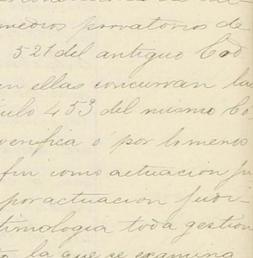 medios probatorios de
521 del antiguo Cód
en ellas concurran la
culo 453 del mismo Có
verifica ó por lo menos
fin como actuacion ju
por actuacion judi-
timologia toda gestion
la que se examina